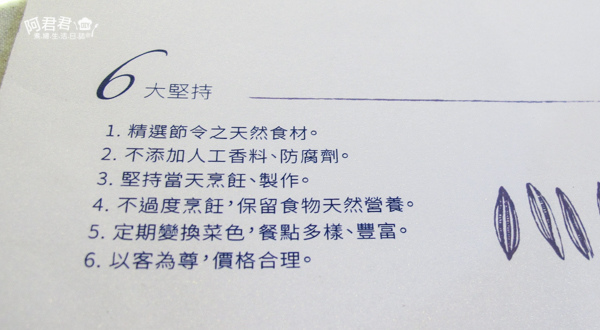 阿君君
素素生活日誌
6 大堅持
1. 精選節令之天然食材。
2. 不添加人工香料、防腐劑。
3. 堅持當天烹飪、製作。
4. 不過度烹飪，保留食物天然營養。
5. 定期變換菜色，餐點多樣、豐富。
6. 以客為尊，價格合理。